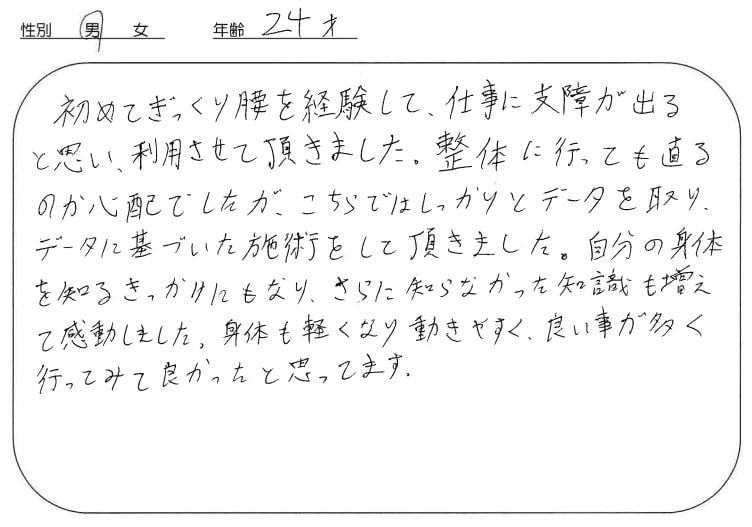 性別 男 女 年齢 24才
初めてぎっくり腰を経験して、仕事に支障が出る
と思い、利用させて頂きました。整体に行っても直る
のか心配でしたが、こちらではしっかりとデータを取り、
データに基づいた施術をして頂きました。自分の身体
を知るきっかけにもなり、さらに知らなかった知識も増え
て感動しました。身体も軽くなり動きやすく、良い事が多く
行ってみて良かったと思ってます。